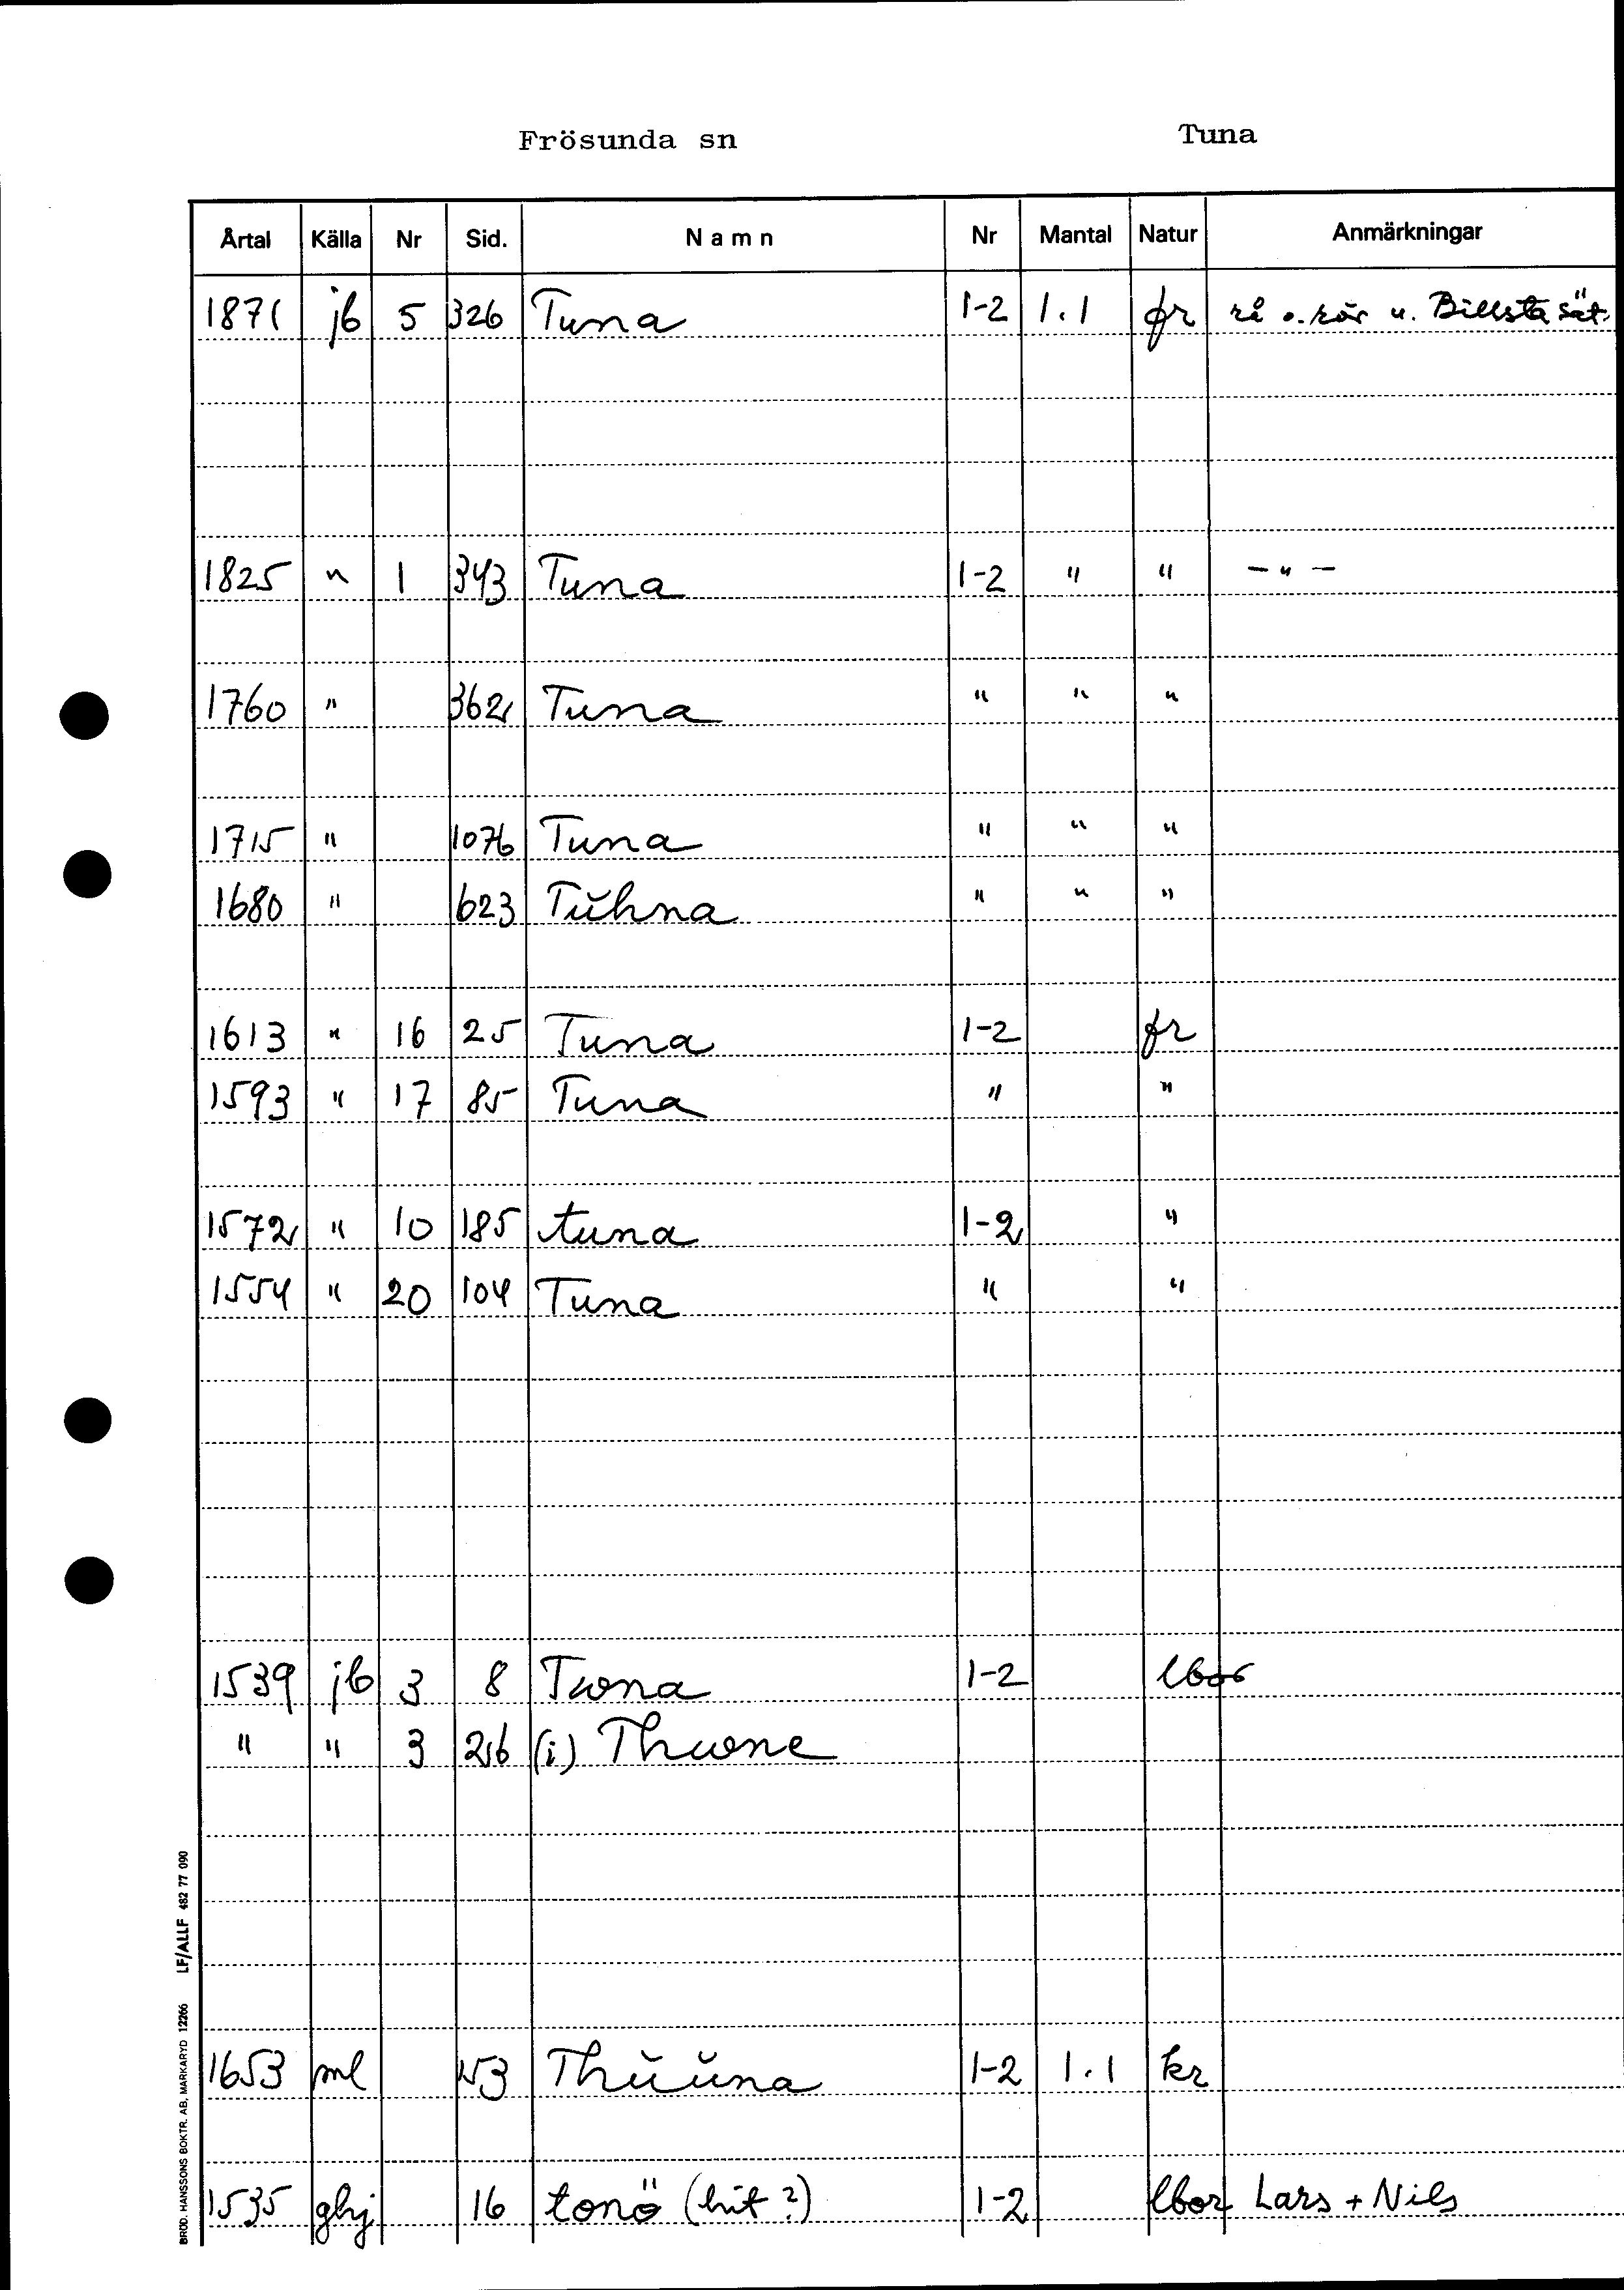 Frösunda sn Tuna
Årtal Källa Nr Sid. Namn Nr Mantal Natur Anmärkningar
1871 jb 5 326 Tuna 1-2 1.1 fr rå o. rör u. Billsta sät.
1825 " 1 343 Tuna 1-2 " " -"-
1760 " 362 Tuna " " "
1715 " 1076 Tuna " " "
1680 " 623 Tŭhna " " "
1613 " 16 25 Tuna 1-2 fr
1593 " 17 85 Tuna " "
1572 " 10 185 tuna 1-2 "
1554 " 20 104 Tuna " "
1539 jb 3 8 Twna 1-2
" " 3 216 (i) Thwne
1653 ml 53 Thŭŭna 1-2 1.1 kr
1535 ghj 16 tonö (hit?) 1-2 lbor Lars + Nils
BRÖD. HANSSONS BOKTR. AB, MARKARYD 12266 LF/ALLF 482 77 090